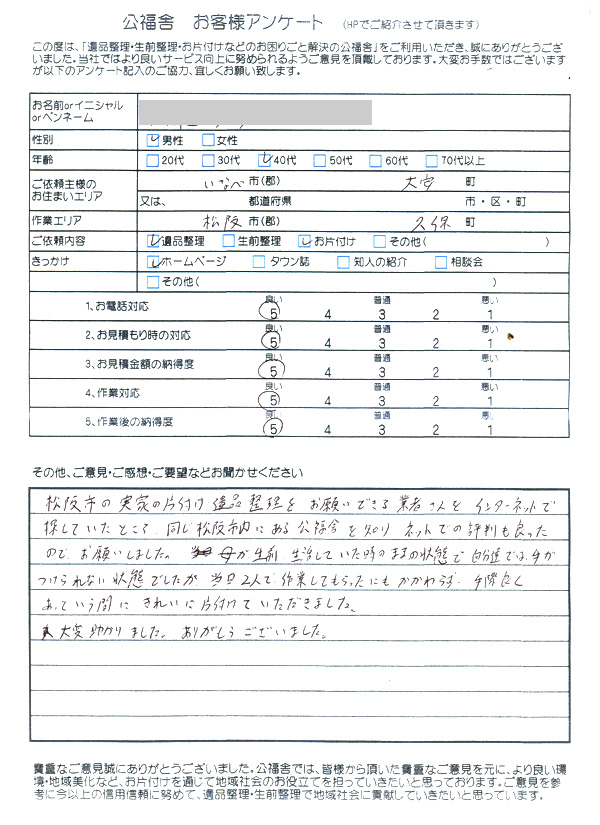 公福舎 お客様アンケート (HPでご紹介させて頂きます)
この度は、「遺品整理・生前整理・お片付けなどのお困りごと解決の公福舎」をご利用いただき、誠にありがとうござ
いました。当社ではより良いサービス向上に努められるようご意見を頂戴しております。大変お手数ではございます
が以下のアンケート記入のご協力、宜しくお願い致します。
お名前orイニシャル
orペンネーム
性別 男性 女性
年齢 20代 30代 40代 50代 60代 70代以上
ご依頼主様の
お住まいエリア
いなべ 市(郡) 大安 町
又は、 都道府県 市・区・町
作業エリア 松阪 市(郡) 久保 町
ご依頼内容 遺品整理 生前整理 お片付け その他( )
きっかけ ホームページ タウン誌 知人の紹介 相談会
その他( )
良い 普通 悪い
1、お電話対応 5 4 3 2 1
良い 普通 悪い
2、お見積もり時の対応 5 4 3 2 1
良い 普通 悪い
3、お見積金額の納得度 5 4 3 2 1
良い 普通 悪い
4、作業対応 5 4 3 2 1
良い 普通 悪い
5、作業後の納得度 5 4 3 2 1
その他、ご意見・ご感想・ご要望などお聞かせください
松阪市の実家の片付け遺品整理をお願いできる業者さんをインターネットで
探していたところ、同じ松阪市内にある公福舎を知り ネットでの評判も良った
ので、お願いしました。 母が生前 生活していた時のままの状態で 自分達では、手が
つけられない状態でしたが 当日2人で作業してもらったにもかかわらず、手際良く
あっという間に きれいに片付けていただきました。
大変助かりました。 ありがとうございました。
貴重なご意見誠にありがとうございました。公福舎では、皆様から頂いた貴重なご意見を元に、より良い環
境・地域美化など、お片付けを通じて地域社会のお役立てを担っていきたいと思っております。ご意見を参
考に今以上の信用信頼に努めて、遺品整理・生前整理で地域社会に貢献していきたいと思っています。